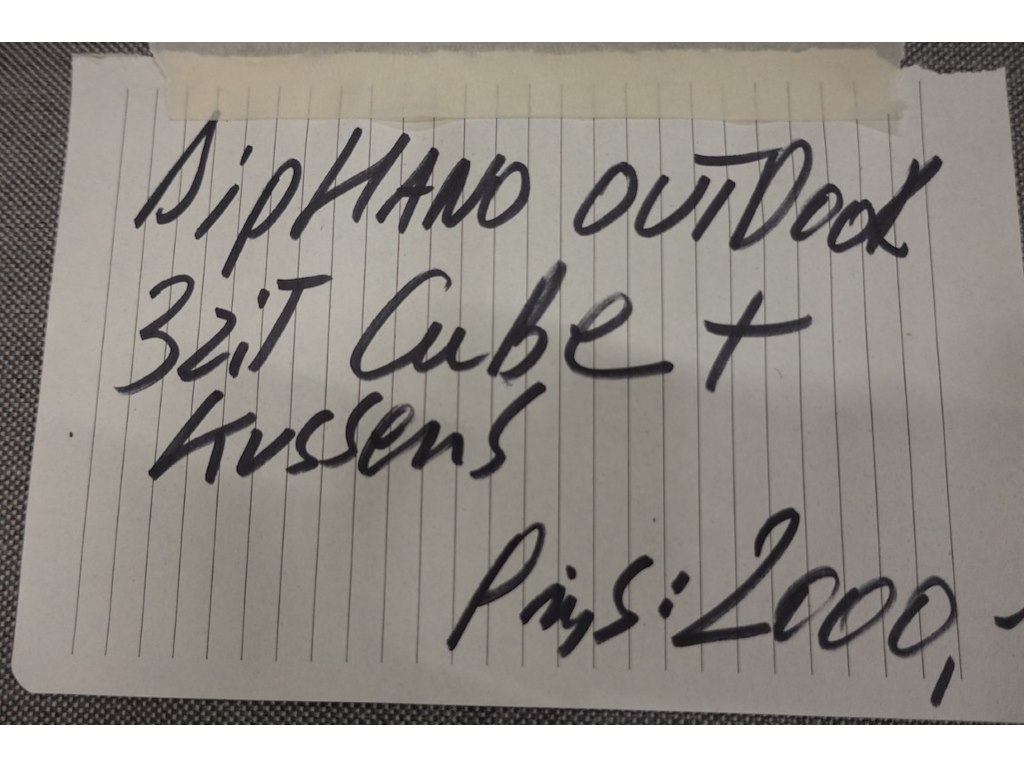 DipHANO OUTDOOR
3ziT Cube +
Kussens
Prijs: 2000,-